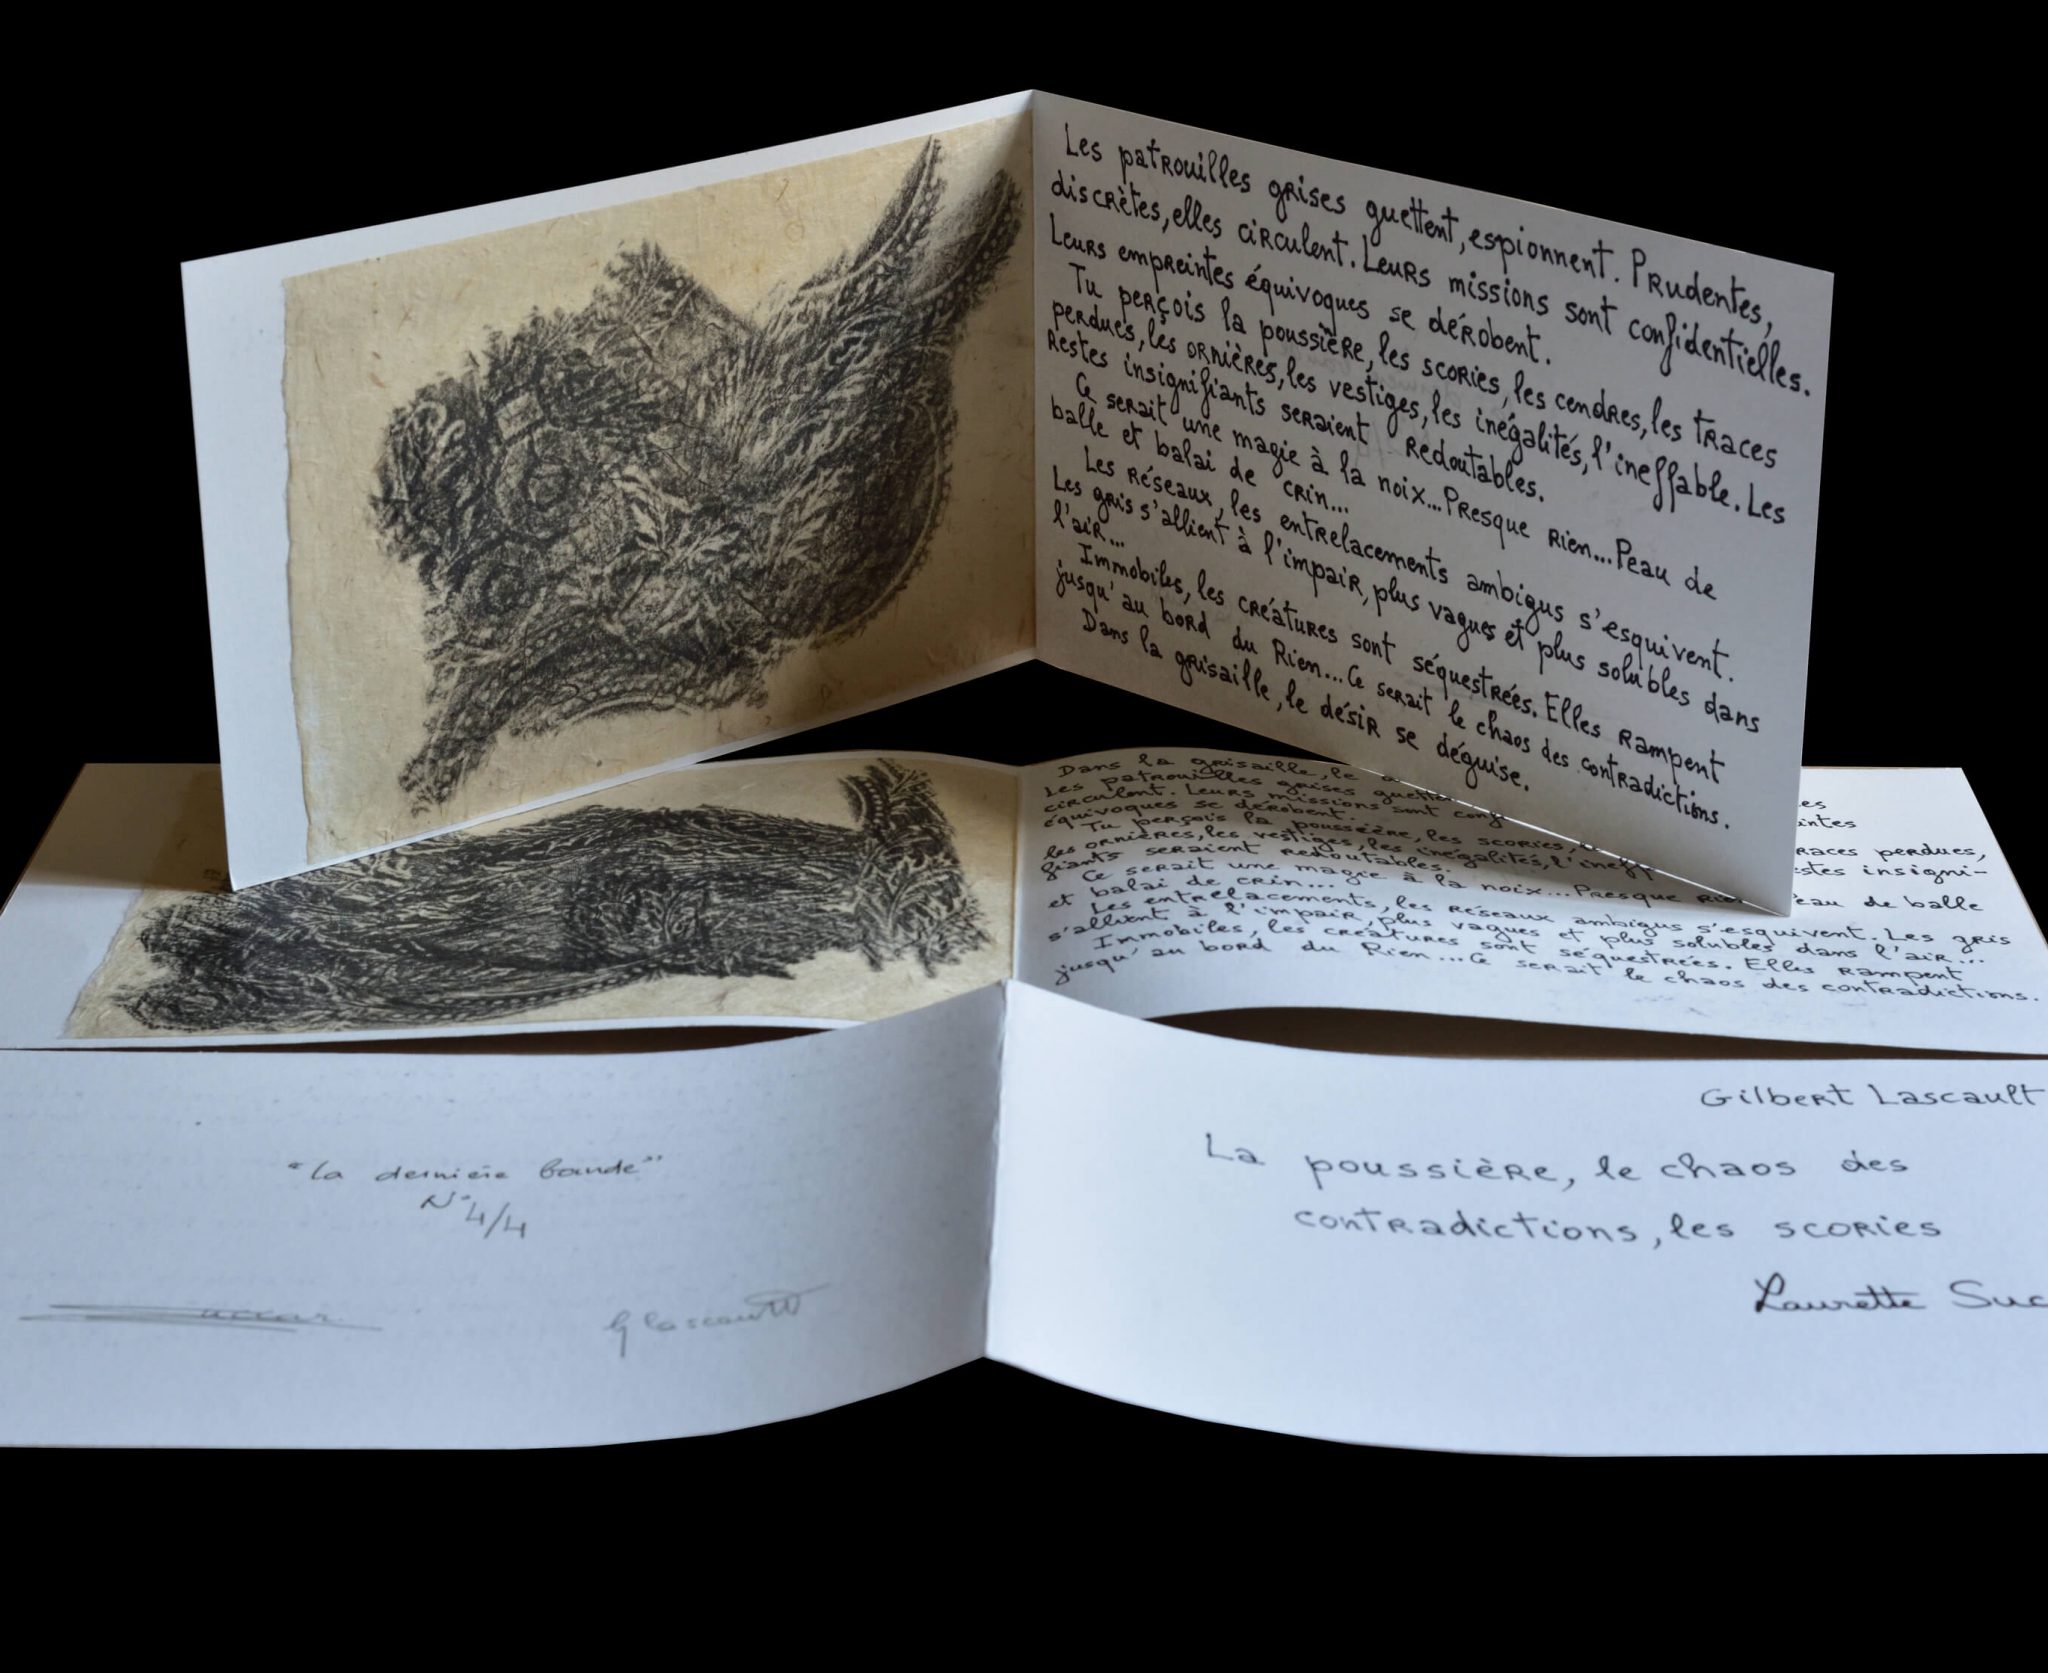 Les patrouilles grises guettent, espionnent. Prudentes,
discrètes, elles circulent. Leurs missions sont confidentielles.
Leurs empreintes équivoques se dérobent.
Tu perçois la poussière, les scories, les cendres, les traces
perdues, les ornières, les vestiges, les inégalités, l'ineffable. Les
restes insignifiants seraient redoutables.
Ce serait une magie à la noix... Presque rien... Peau de
balle et balai de crin...
Les réseaux, les entrelacements ambigus s'esquivent.
Les gris s'allient à l'impair, plus vagues et plus solubles dans
l'air...
Immobiles, les créatures sont séquestrées. Elles rampent
jusqu'au bord du Rien... Ce serait le chaos des contradictions.
Dans la grisaille, le désir se déguise.
Dans la grisaille, le
Les patrouilles grises
circulent. Leurs missions sont
équivoques se dérobent.
Tu perçois la poussière, les scories, races perdues,
les ornières, les vestiges, les inégalités, estes insigni-
fiants seraient redoutables.
Ce serait une magie à la noix... Presque eau de balle
et balai de crin...
Les entrelacements, les réseaux ambigus s'esquivent. Les gris
s'allient à l'impair, plus vagues et plus solubles dans l'air...
Immobiles, les créatures sont séquestrées. Elles rampent
jusqu'au bord du Rien... Ce serait le chaos des contradictions.
"La dernière bande"
N° 4/4
G Lascault
Gilbert Lascault
La poussière, le chaos des
contradictions, les scories
Laurette Suc